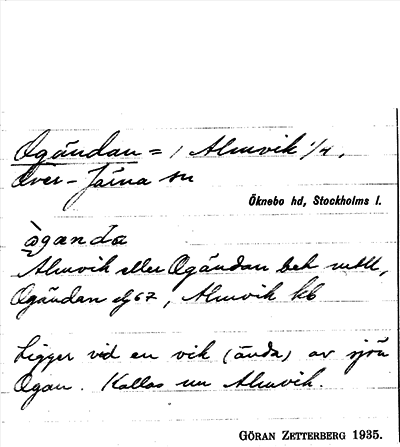 Ogändan = 1 Almvik 1/4,
Över-Järna sn
Öknebo hd, Stockholms l.
Almvik eller Ogändan bek
Ogändan 67, Almvik kb
Ligger vid en vik (ända) av sjön
Ogan. Kallas nu Almvik.
GÖRAN ZETTERBERG 1935.